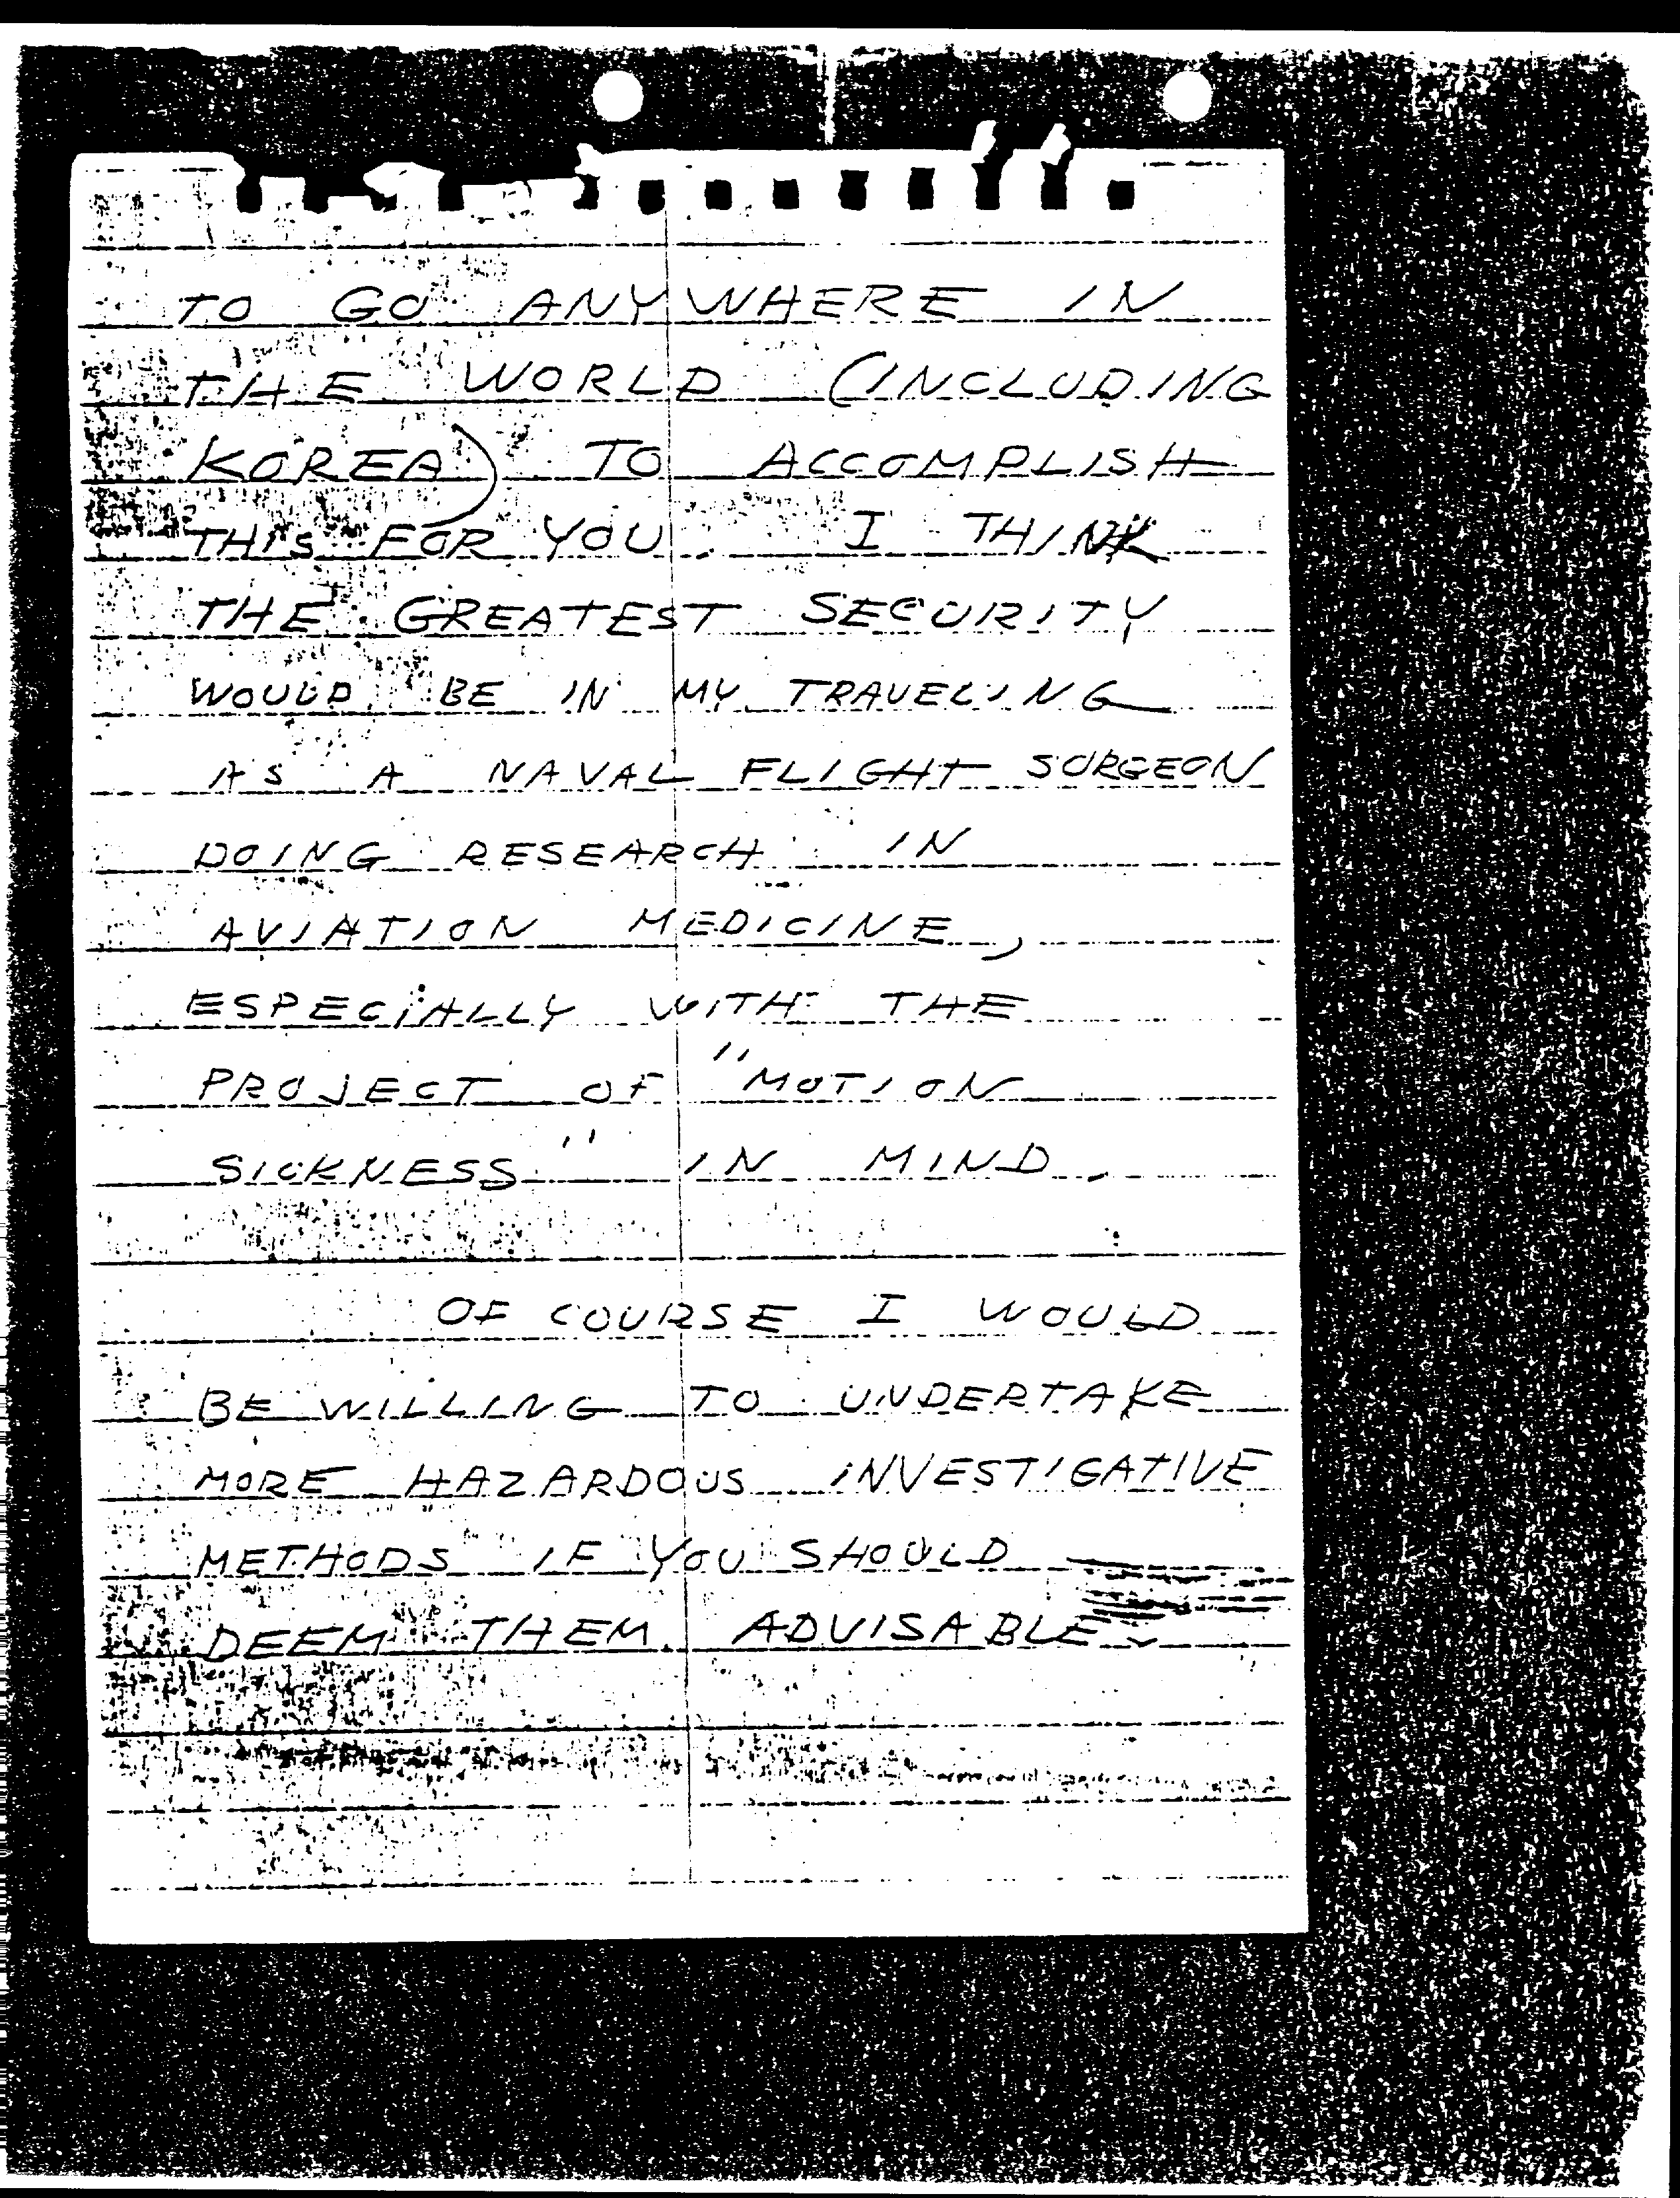 TO GO ANYWHERE IN
THE WORLD (INCLUDING
KOREA) TO ACCOMPLISH
THIS FOR YOU. I THINK
THE GREATEST SECURITY
WOULD BE IN MY TRAVELING
AS A NAVAL FLIGHT SURGEON
DOING RESEARCH IN
AVIATION MEDICINE,
ESPECIALLY WITH THE
PROJECT OF "MOTION
SICKNESS" IN MIND.
OF COURSE I WOULD
BE WILLING TO UNDERTAKE
MORE HAZARDOUS INVESTIGATIVE
METHODS IF YOU SHOULD
DEEM THEM ADVISABLE.